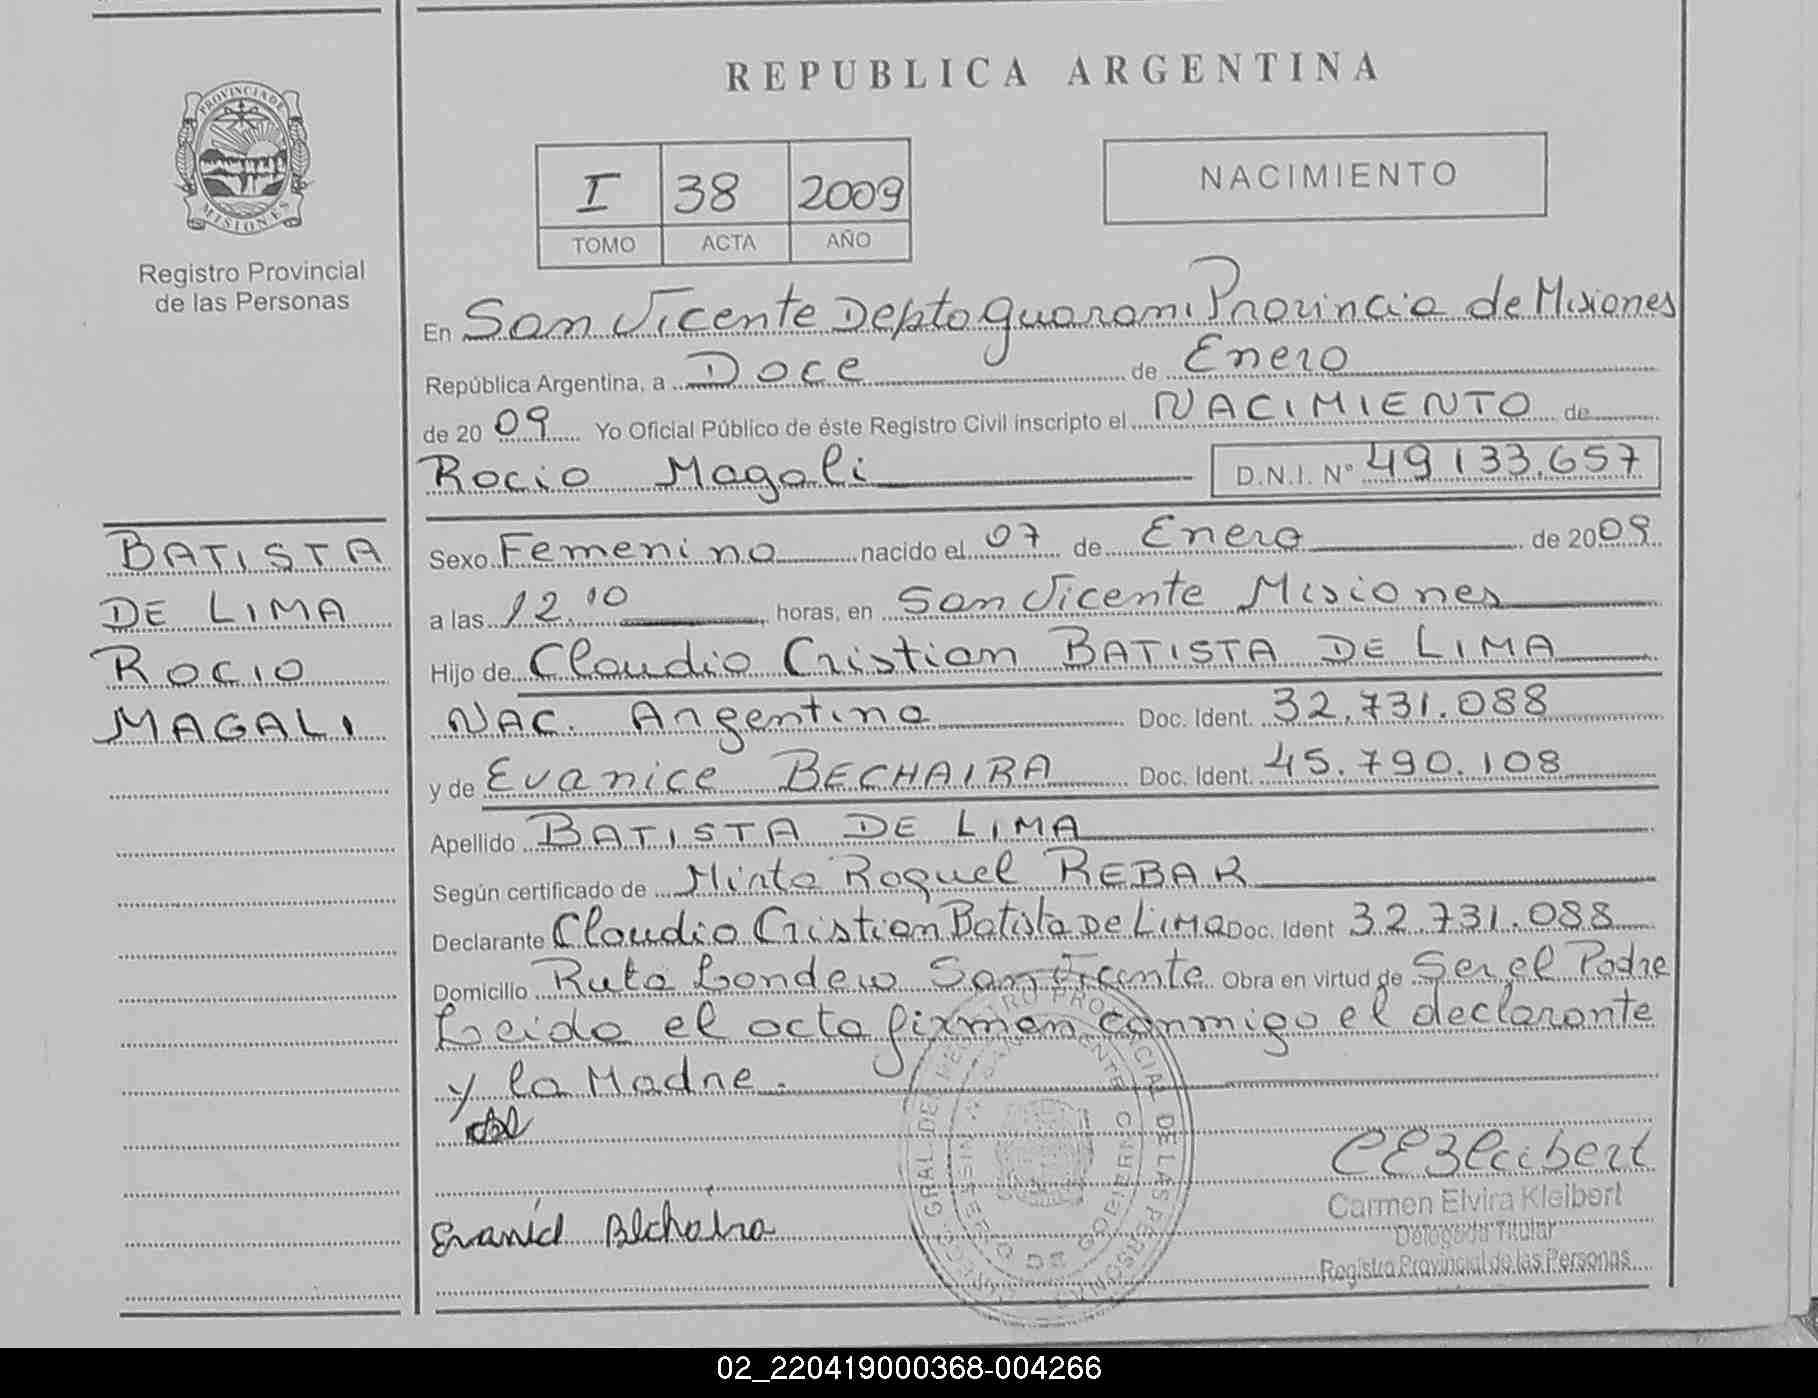 REPUBLICA ARGENTINA
PROVINCIA DE
MISIONES
Registro Provincial
de las Personas
I 38 2009
TOMO ACTA AÑO
NACIMIENTO
En San Vicente Depto guarani Provincia de Misiones
República Argentina, a Doce de Enero
de 2009 Yo Oficial Público de éste Registro Civil inscripto el NACIMIENTO de
Rocio Magali D.N.I. N° 49133.657
BATISTA
DE LIMA
ROCIO
MAGALI
Sexo Femenino nacido el 07 de Enero de 2009
a las 12.10 horas, en San Vicente Misiones
Hijo de Claudio Cristian BATISTA DE LIMA
NAC. Argentina Doc. Ident. 32.731.088
y de Evanice BECHAIRA Doc. Ident. 45.790.108
Apellido BATISTA DE LIMA
Según certificado de Mirta Raquel REBAR
Declarante Claudio Cristian Batista De LiMa Doc. Ident 32.731.088
Domicilio Ruta San Vicente Obra en virtud de Ser el Padre
Leida el acta firman conmigo el declarante
y la Madre.
Carmen Elvira Kleibert
Delegada Titular
Registro Provincial de las Personas
02_220419000368-004266